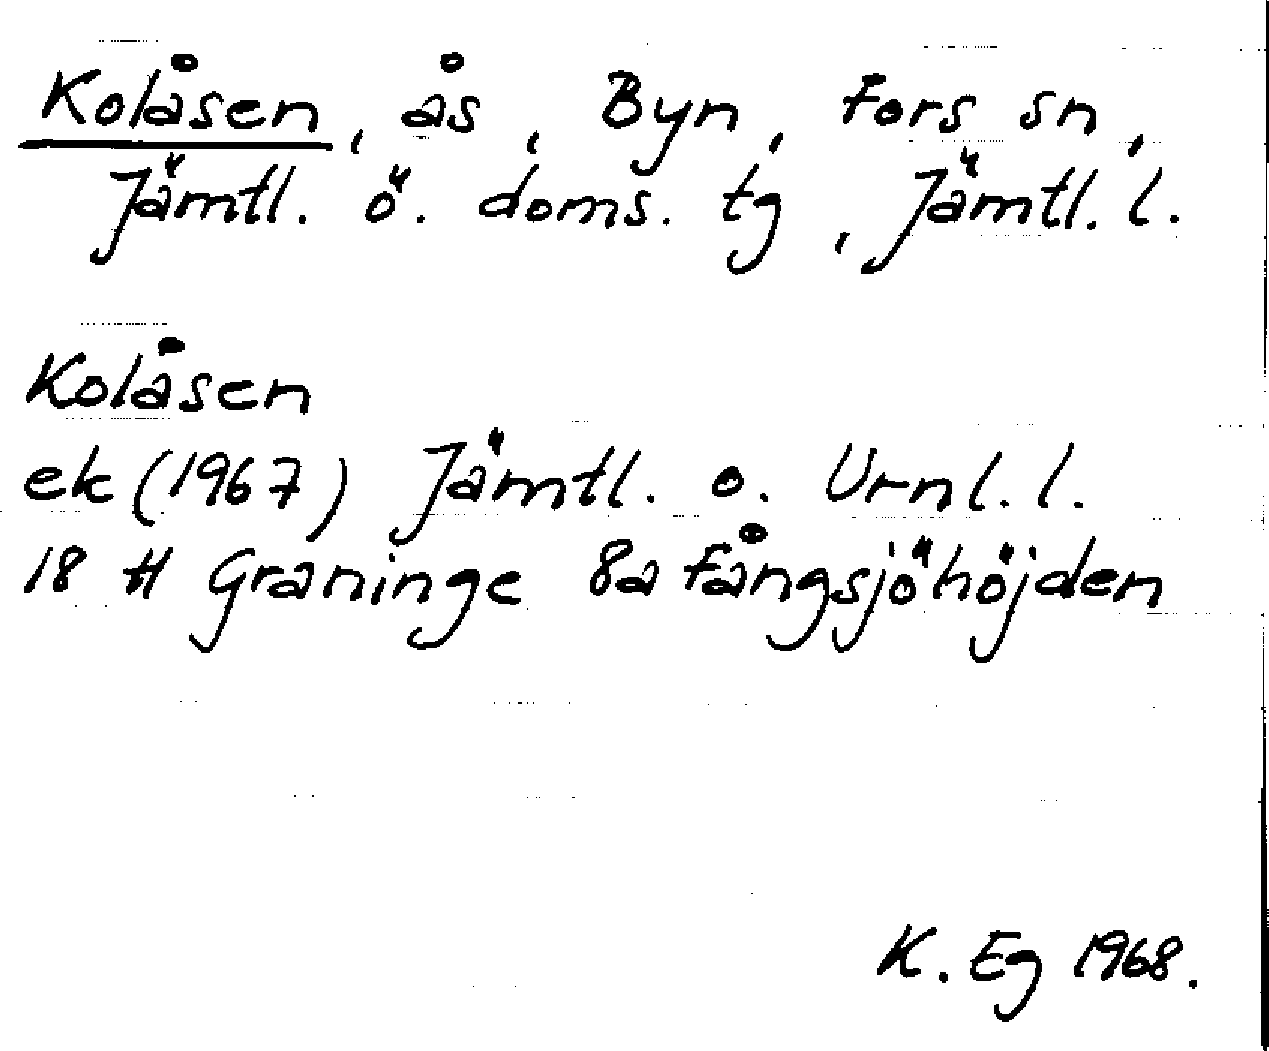 Kolåsen, ås, Byn, Fors sn,
Jämtl. ö. doms. tg, Jämtl. l.
Kolåsen
ek (1967) Jämtl. o. Vrnl. l.
18 H Graninge 8a Fångsjöhöjden
K. Eg 1968.